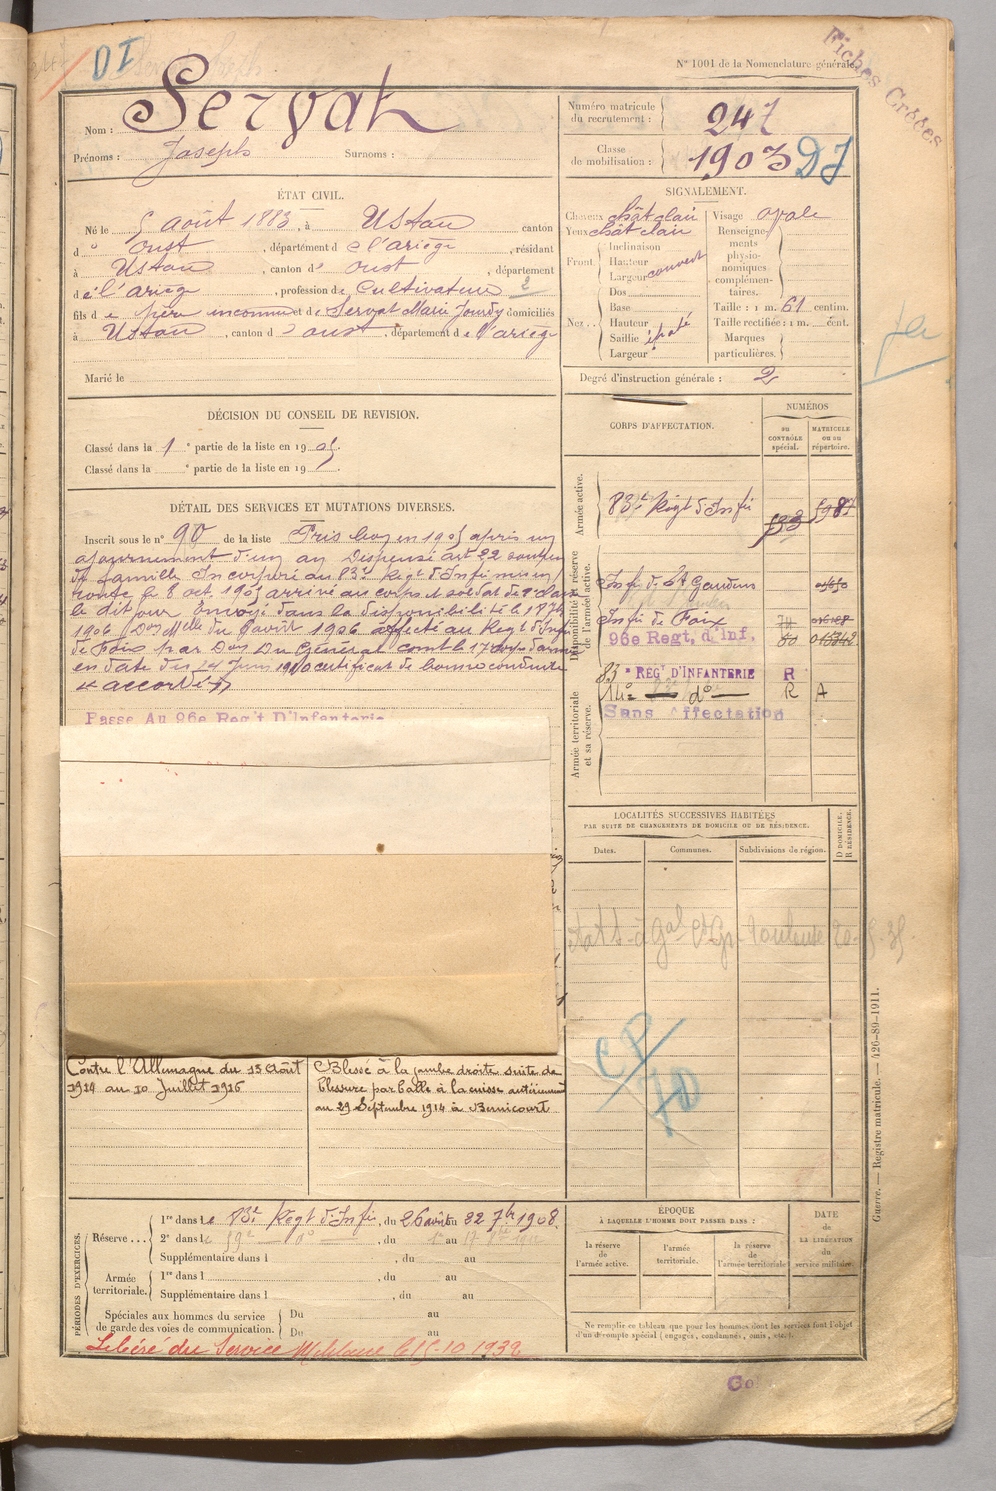 DI
N° 1001 de la Nomenclature générale.
Fiches Créées
Nom : Servat
Prénoms : Joseph Surnoms :
Numéro matricule du recrutement : 247
Classe de mobilisation : 1903 DI
ÉTAT CIVIL.
Né le 5 août 1883, à Ustou canton
d' Oust, département de l'ariège, résidant
à Ustou, canton d' oust, département
de l'ariège, profession de Cultivateur 2
fils de père inconnu et de Servat Marie domiciliés
à Ustou, canton d' oust, département de l'ariège
Marié le
SIGNALEMENT.
Cheveux chât clair
Yeux chât clair
Front. Inclinaison
Hauteur
Largeur couvert
Nez. Dos
Base
Hauteur
Saillie épaté
Largeur
Visage ovale
Renseignements physionomiques complémentaires.
Taille : 1 m. 61 centim.
Taille rectifiée : 1 m. cent.
Marques particulières.
Degré d'instruction générale : 2
DÉCISION DU CONSEIL DE REVISION.
Classé dans la 1e partie de la liste en 1905.
Classé dans la e partie de la liste en 19
CORPS D'AFFECTATION.
NUMÉROS
DU CONTRÔLE spécial.
MATRICULE OU AU répertoire.
Armée active.
83e Régt d'Infie
Disponibilité et réserve de l'armée active.
Infie de St Gaudens
Infie de Foix
96e Regt. d'Inf.
Armée territoriale et sa réserve.
83e RÉGt D'INFANTERIE R
14e do R A
Sans Affectation
DÉTAIL DES SERVICES ET MUTATIONS DIVERSES.
Inscrit sous le n° 90 de la liste Pris bon en 1905 après un
ajournement d'un an Dispensé art 22 soutien
de famille Incorporé au 83e Régt d'Infie mis en
route le 8 oct. 1905 arrivé au corps et soldat de 2e classe
le dit jour Envoyé dans la disponibilité le
1906 affecté au Regt d'Infie
de Foix par Don Du Général comt le 17e corps d'armée
en date du 24 Juin certificat de bonne conduite
accordé
Passe Au 96e Reg't D'Infanterie
LOCALITÉS SUCCESSIVES HABITÉES
PAR SUITE DE CHANGEMENTS DE DOMICILE OU DE RÉSIDENCE.
Dates.
Communes.
Subdivisions de région.
D DOMICILE.
R RÉSIDENCE.
Toulouse
CP
70
Contre l'Allemagne du 13 Août
1914 au 10 Juillet 1916
Blessé à la jambe droite suite de
blessure par balle à la cuisse antérieurement
au 29 Septembre 1914 à Bernicourt
PÉRIODES D'EXERCICES.
Réserve...
1re dans le 83e Régt d'Infie, du 26 août au 22 7bre 1908.
2e dans le , du au
Supplémentaire dans l , du au
Armée territoriale.
1re dans l , du au
Supplémentaire dans l , du au
Spéciales aux hommes du service de garde des voies de communication.
Du au
Du au
Libéré du Service Militaire le 15-10-1932
ÉPOQUE
À LAQUELLE L'HOMME DOIT PASSER DANS :
la réserve de l'armée active.
l'armée territoriale.
la réserve de l'armée territoriale
DATE de LA LIBÉRATION du service militaire.
Ne remplir ce tableau que pour les hommes dont les services font l'objet
d'un décompte spécial (engagés, condamnés, omis, etc.).
Guerre. — Registre matricule. — 426-89-1911.